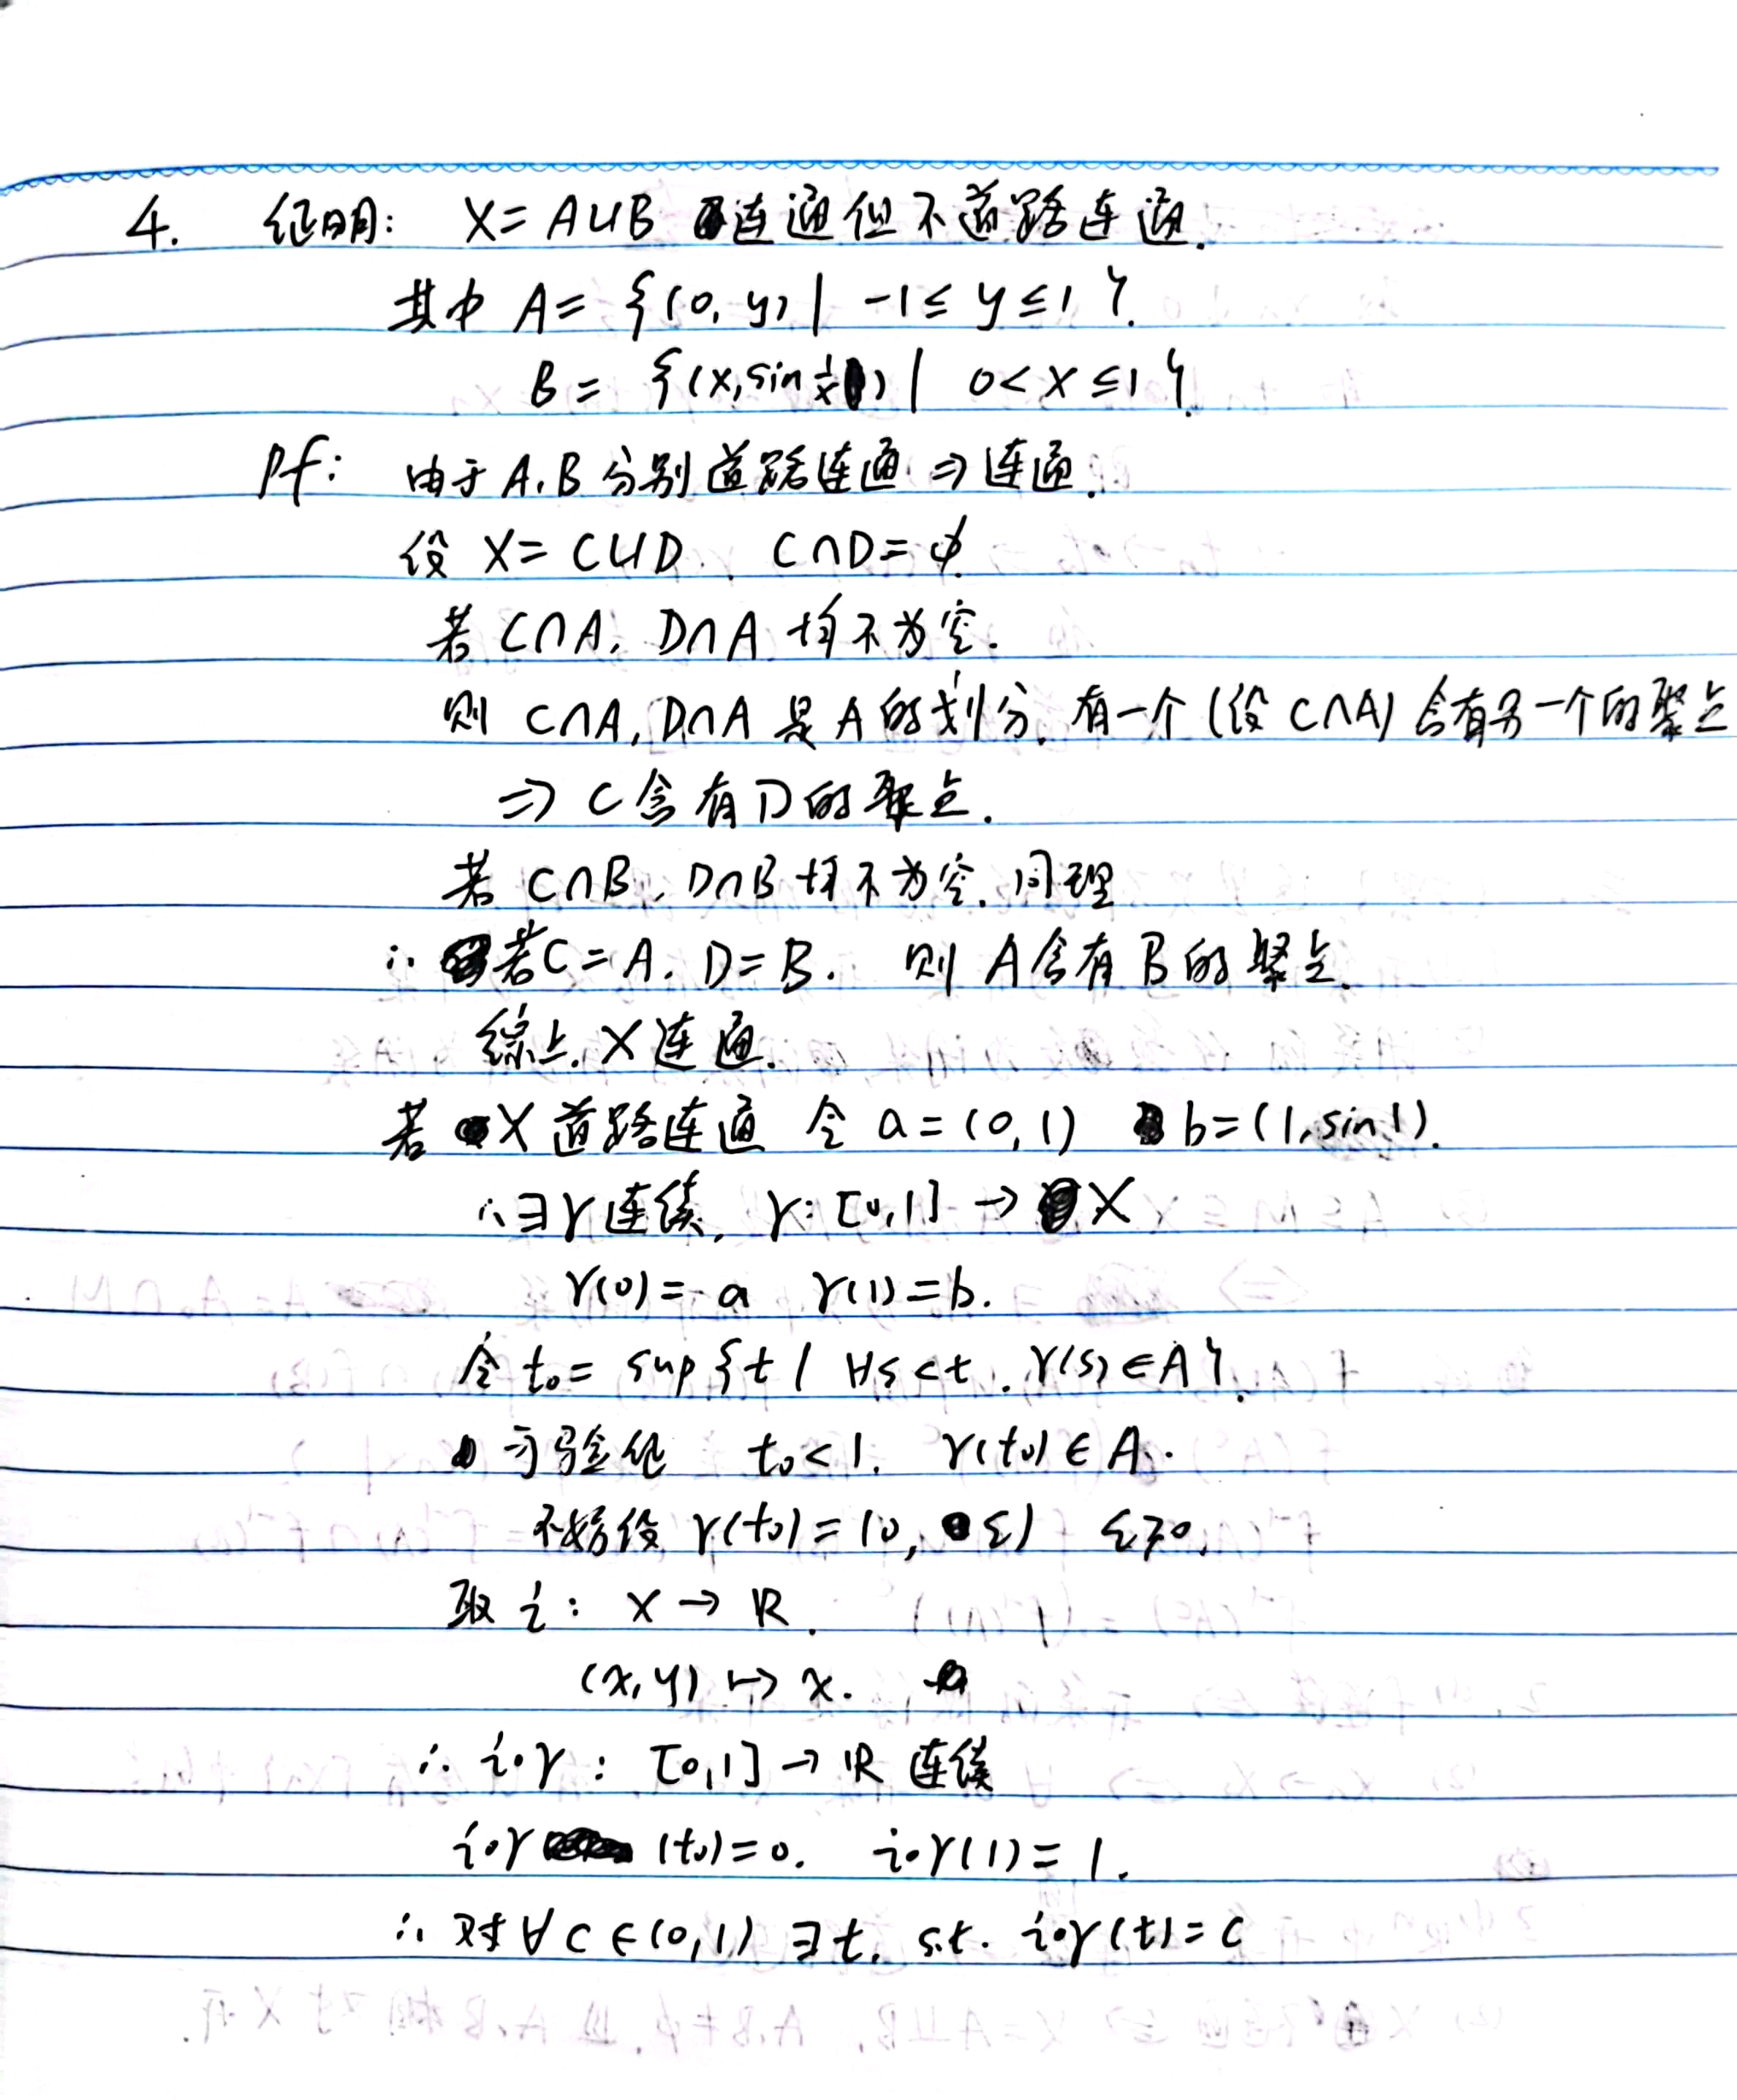 4. 证明: X = A∪B 连通但不道路连通.
其中 A = {(0, y) | -1 ≤ y ≤ 1}.
B = {(x, sin 1/x) | 0 < x ≤ 1}.
pf: 由于 A, B 分别道路连通 ⇒ 连通.
设 X = C∪D, C∩D = ∅.
若 C∩A, D∩A 均不为空.
则 C∩A, D∩A 是 A 的划分. 有一个 (设 C∩A) 含有另一个的聚点
⇒ C 含有 D 的聚点.
若 C∩B, D∩B 均不为空. 同理
∴ 若 C = A. D = B. 则 A 含有 B 的聚点.
综上, X 连通.
若 X 道路连通 令 a = (0, 1) b = (1, sin 1).
∴ ∃ γ 连续, γ: [0,1] → X
γ(0) = a γ(1) = b.
令 t₀ = sup {t | ∀s<t. γ(s) ∈ A}.
可验证 t₀ < 1. γ(t₀) ∈ A.
不妨设 γ(t₀) = (0, ξ) ξ ≥ 0.
取 i: X → ℝ.
(x, y) ↦ x.
∴ i∘γ: [0,1] → ℝ 连续
i∘γ (t₀) = 0. i∘γ(1) = 1.
∴ 对 ∀ c ∈ (0,1) ∃ t. s.t. i∘γ(t) = c